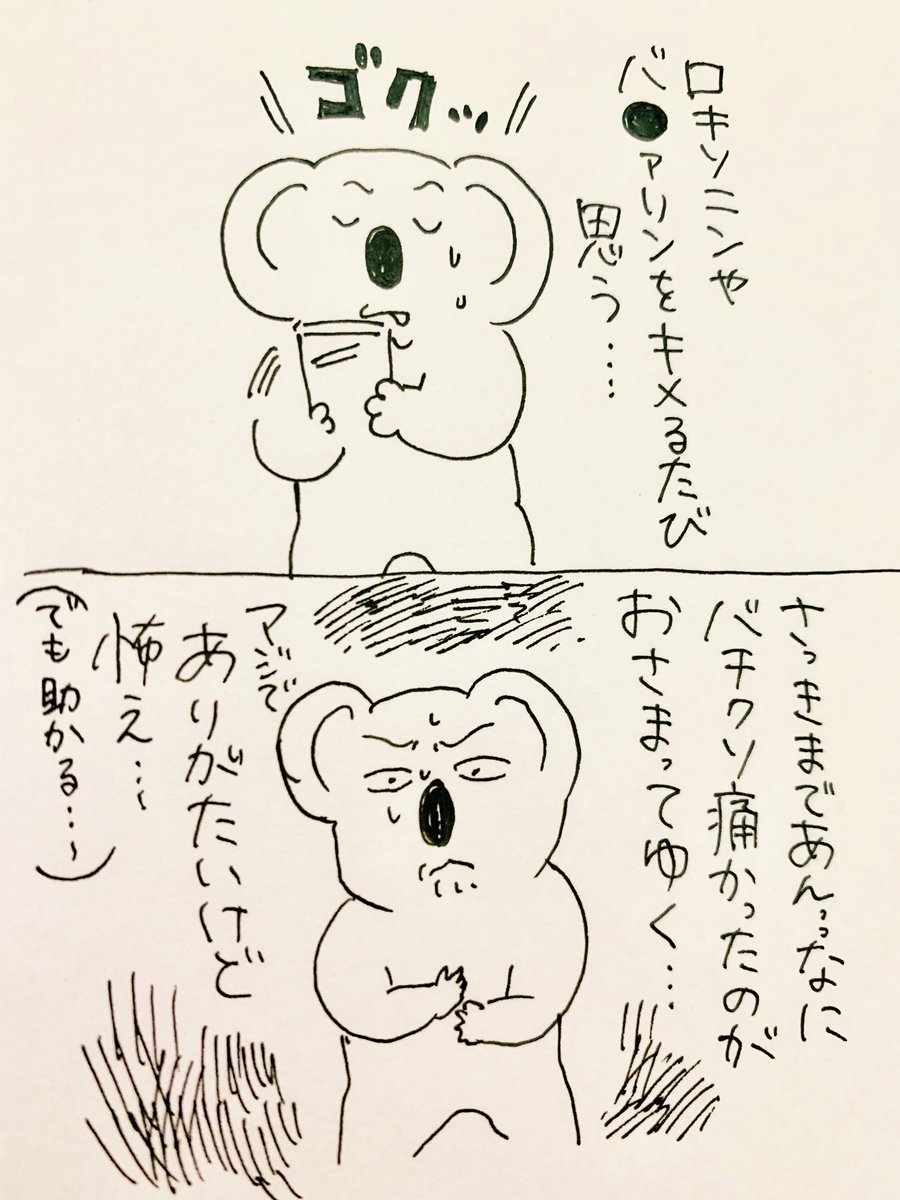 ロキソニンや
バ●ァリンをキメるたび
思う‥‥
ゴクッ
さっきまであんっなに
バチクソ痛かったのが
おさまってゆく‥‥
マジで
ありがたいけど
怖え‥‥
(でも助かる‥‥)